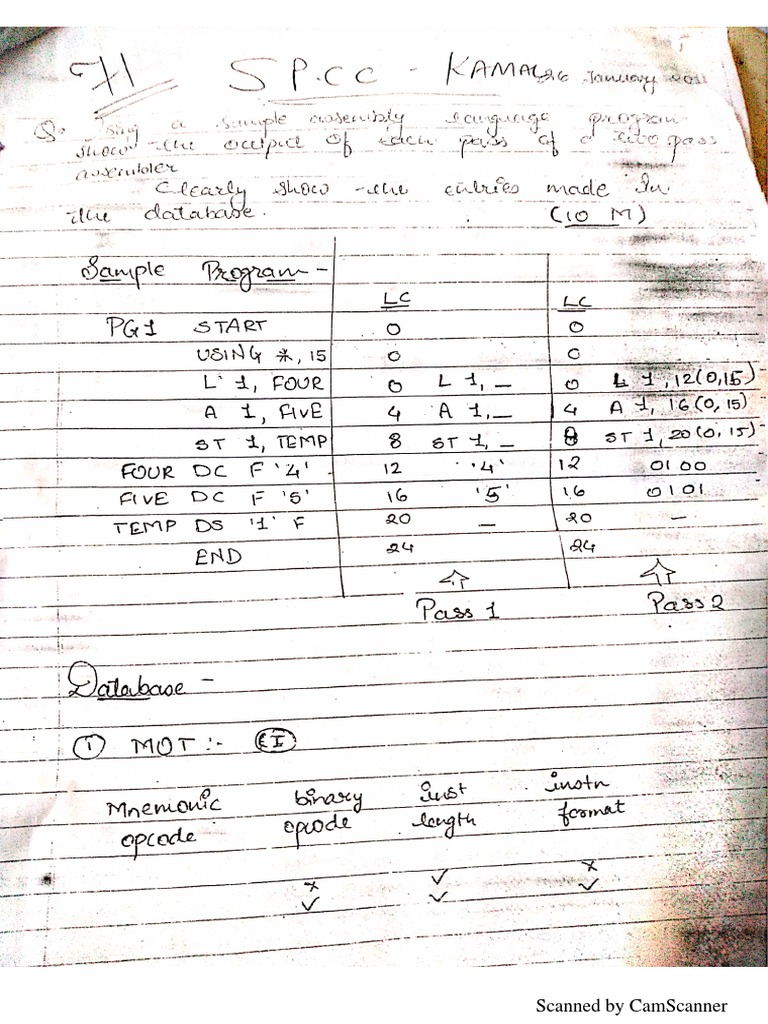 SP.CC - KAMAL 26 January 2011
Q. Using a sample assembly language program
show the output of each pass of a two pass
assembler
Clearly show the entries made in
the database. (10 M)
Sample Program -
LC LC
PG1 START 0 0
USING *, 15 0 0
L 1, FOUR 0 L 1, _ 0 L 1, 12(0,15)
A 1, FIVE 4 A 1, _ 4 A 1, 16(0,15)
ST 1, TEMP 8 ST 1, _ 8 ST 1, 20(0,15)
FOUR DC F '4' 12 '4' 12 0100
FIVE DC F '5' 16 '5' 16 0101
TEMP DS '1' F 20 _ 20 -
END 24 24
Pass 1 Pass 2
Database -
① MOT :-
Mnemonic binary inst instn
opcode opcode length format
x ✓ x
✓ ✓ ✓
Scanned by CamScanner